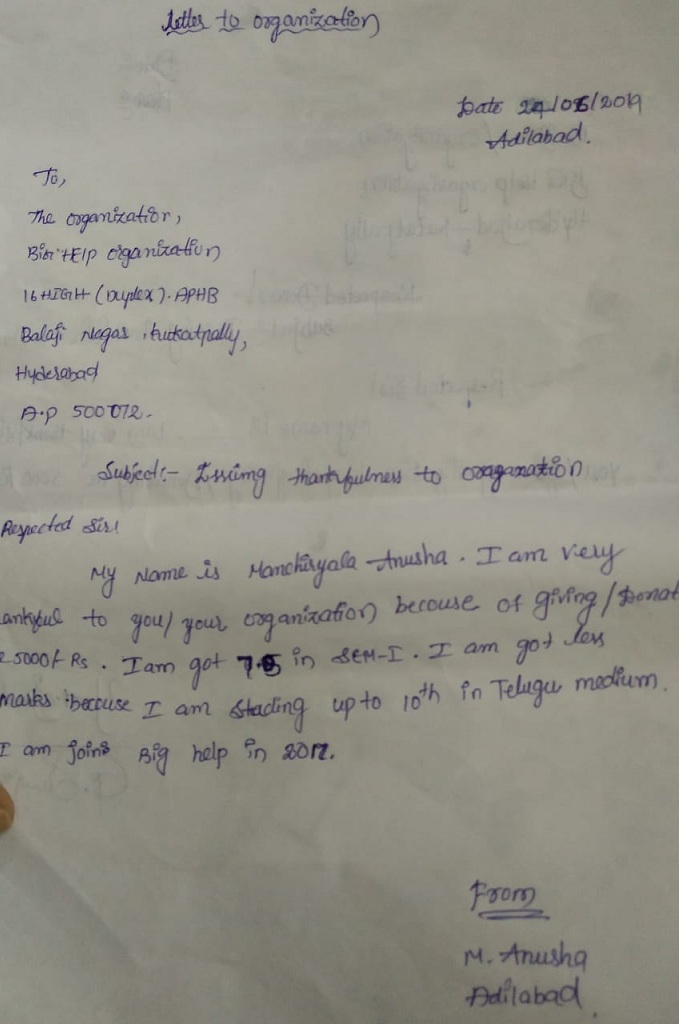 Letter to organization
Date 24/06/2019
Adilabad.
To,
The organization,
Big HElp organization
16 HIGH (Duplex). APHB
Balaji Nagar, kukatpally,
Hyderabad
A.P 500072.
Subject:- Issuing thankfulness to oraganazation
Respected Sir!
My Name is Manchiryala Anusha. I am very
ankful to you/ your organization becouse of giving/Donat
25000/- Rs. I am got 7.5 in SEM-I. I am got less
marks becouse I am stading up to 10th in Telugu medium.
I am joins Big help in 2017.
From
M. Anusha
Adilabad.